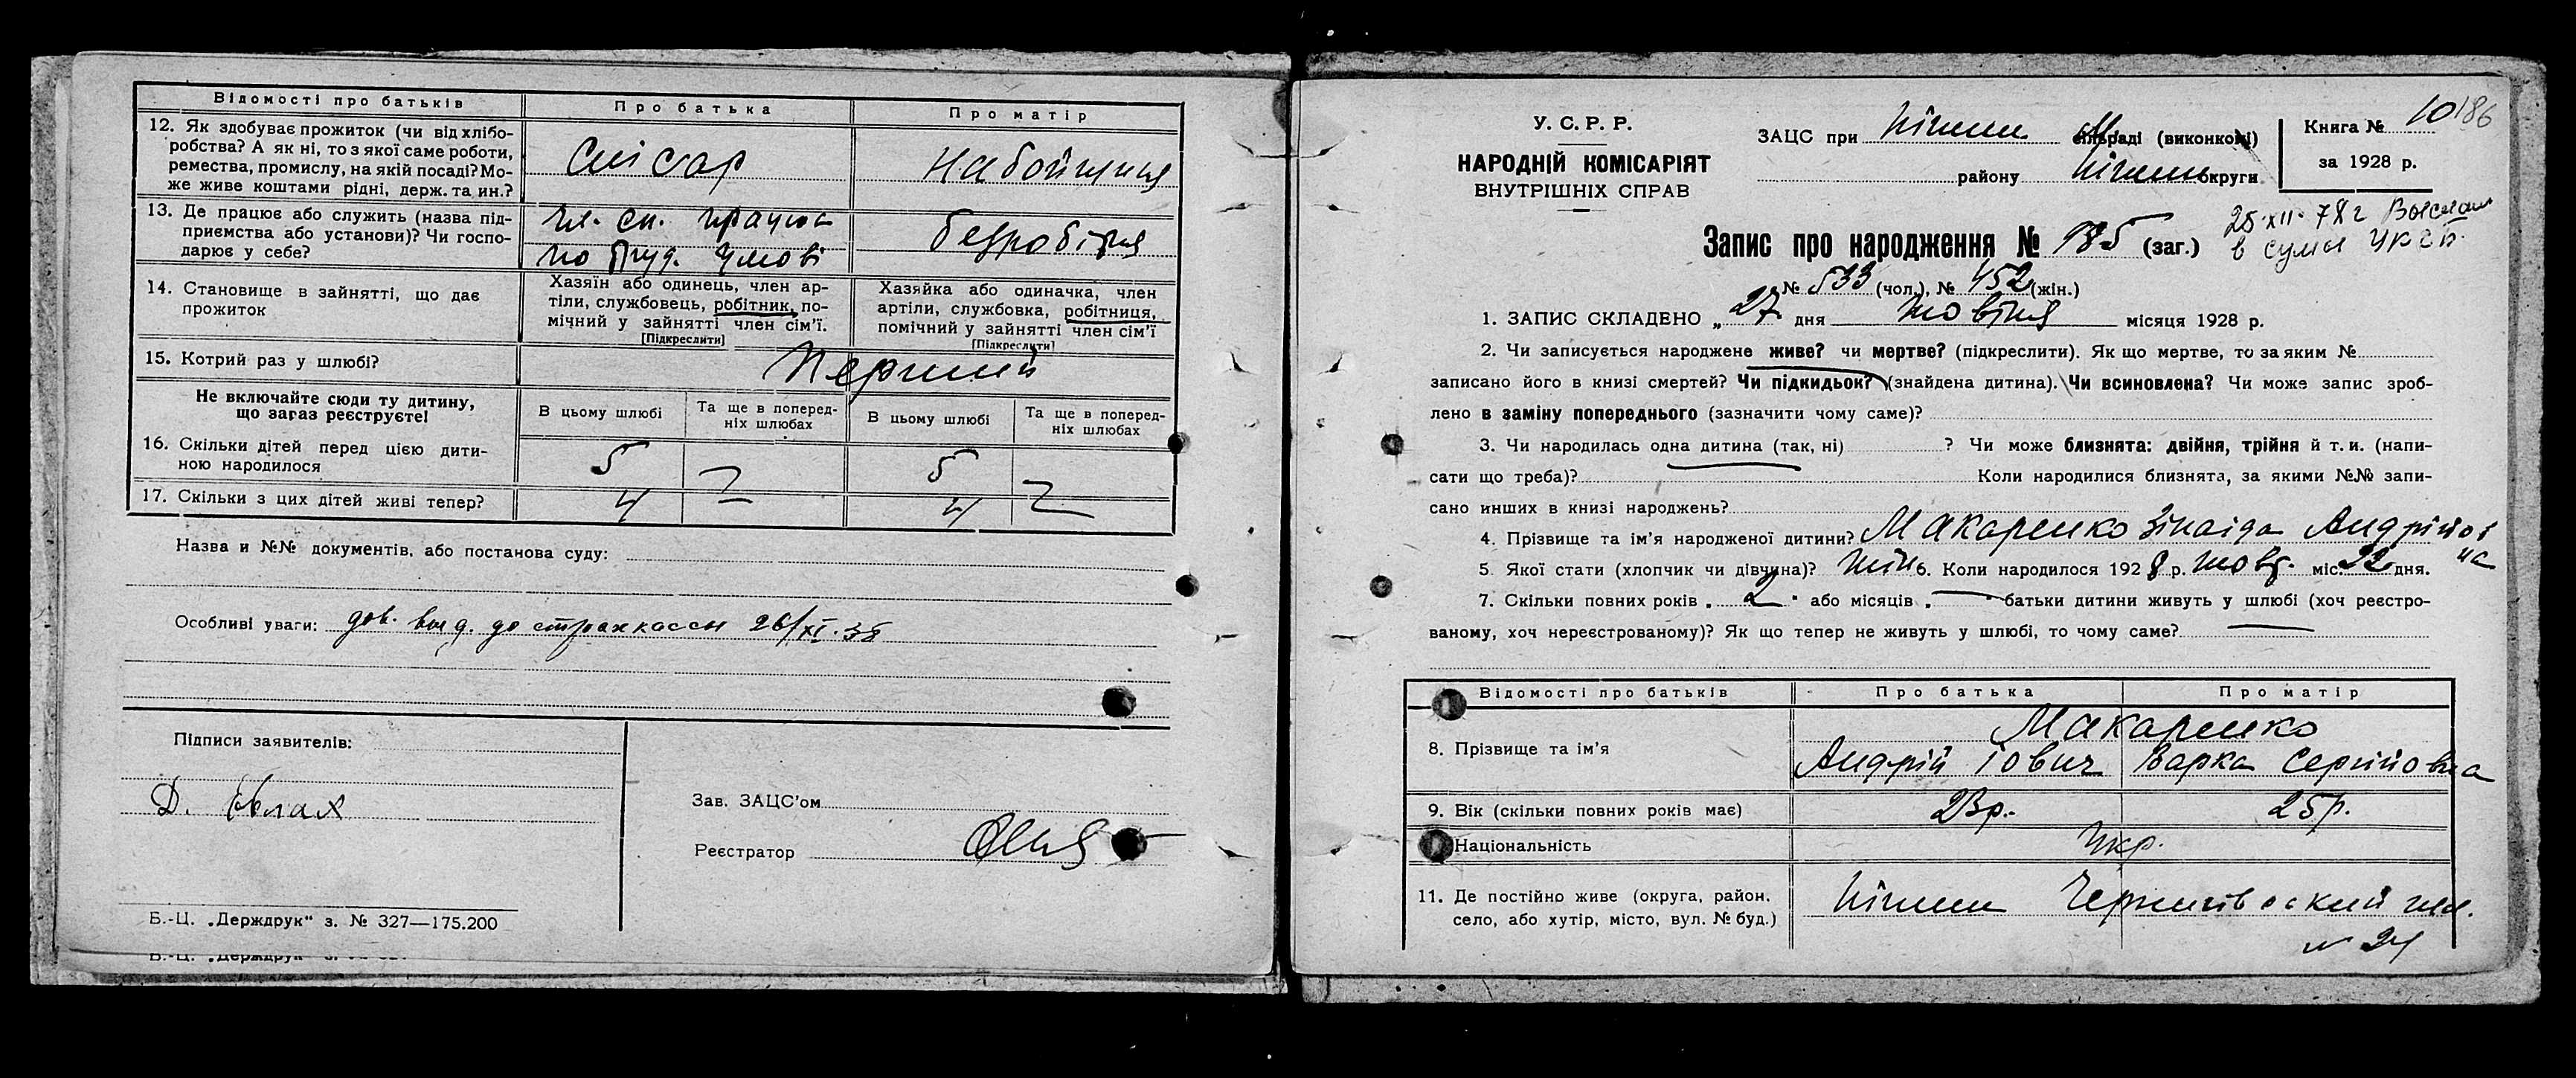 Відомості про батьків
Про батька
Про матір
12. Як здобуває прожиток (чи від хлібо-
робства? А як ні, то з якої саме роботи,
ремества, промислу, на якій посаді? Мо-
же живе коштами рідні, держ. та ин.?
Слісар
Набойщиця
13. Де працює або служить (назва під-
приємства або установи)? Чи госпо-
дарює у себе?
чл. сп. працює
по труд. умові
безробітня
14. Становище в зайнятті, що дає
прожиток
Хазяїн або одинець, член ар-
тіли, службовець, робітник, по-
мічний у зайнятті член сім'ї.
[Підкреслити]
Хазяйка або одиначка, член
артіли, службовка, робітниця,
помічний у зайнятті член сім'ї
[Підкреслити]
15. Котрий раз у шлюбі?
Перший
Не включайте сюди ту дитину,
що зараз реєструєте!
В цьому шлюбі
Та ще в поперед-
ніх шлюбах
В цьому шлюбі
Та ще в поперед-
ніх шлюбах
16. Скільки дітей перед цією дити-
ною народилося
5
5
17. Скільки з цих дітей живі тепер?
4
4
Назва и №№ документів, або постанова суду:
Особливі уваги: дов. вид. до страхкассы 26/XI.35
Підписи заявителів:
Д.
Зав. ЗАЦС'ом
Реєстратор
Б.-Ц. „Держдрук“ з. № 327—175.200
Б.-Ц. „Держдрук“ з.
У. С. Р. Р.
НАРОДНІЙ КОМІСАРІЯТ
ВНУТРІШНІХ СПРАВ
ЗАЦС при Ніжин М сільраді (виконкомі)
району Ніжин округи
Книга № 10
186
за 1928 р.
25.XII.78г Выслан
в сумы
Запис про народження № 985 (заг.)
№ 533 (чол.), № 452 (жін.)
1. ЗАПИС СКЛАДЕНО „27 дня жовтня місяця 1928 р.
2. Чи записується народжене живе? чи мертве? (підкреслити). Як що мертве, то за яким №
записано його в книзі смертей? Чи підкидьок? (знайдена дитина). Чи всиновлена? Чи може запис зроб-
лено в заміну попереднього (зазначити чому саме)?
3. Чи народилась одна дитина (так, ні) ? Чи може близнята: двійня, трійня й т. и. (напи-
сати що треба)? Коли народилися близнята, за якими №№ запи-
сано инших в книзі народжень?
4. Прізвище та ім'я народженої дитини? Макаренко Зінаїда Андрійов
на
5. Якої стати (хлопчик чи дівчина)? жін 6. Коли народилося 1928 р. жовт. міс. 22 дня.
7. Скільки повних років „ 2 “ або місяців „ — “ батьки дитини живуть у шлюбі (хоч реєстро-
ваному, хоч нереєстрованому)? Як що тепер не живуть у шлюбі, то чому саме? —
Відомості про батьків
Про батька
Про матір
8. Прізвище та ім'я
Макаренко
Андрій Іович
Варка Сергійовна
9. Вік (скільки повних років має)
23р.
25р.
Національність
Укр.
11. Де постійно живе (округа, район,
село, або хутір, місто, вул. № буд.)
Ніжин Чернигівський шл.
№ 24